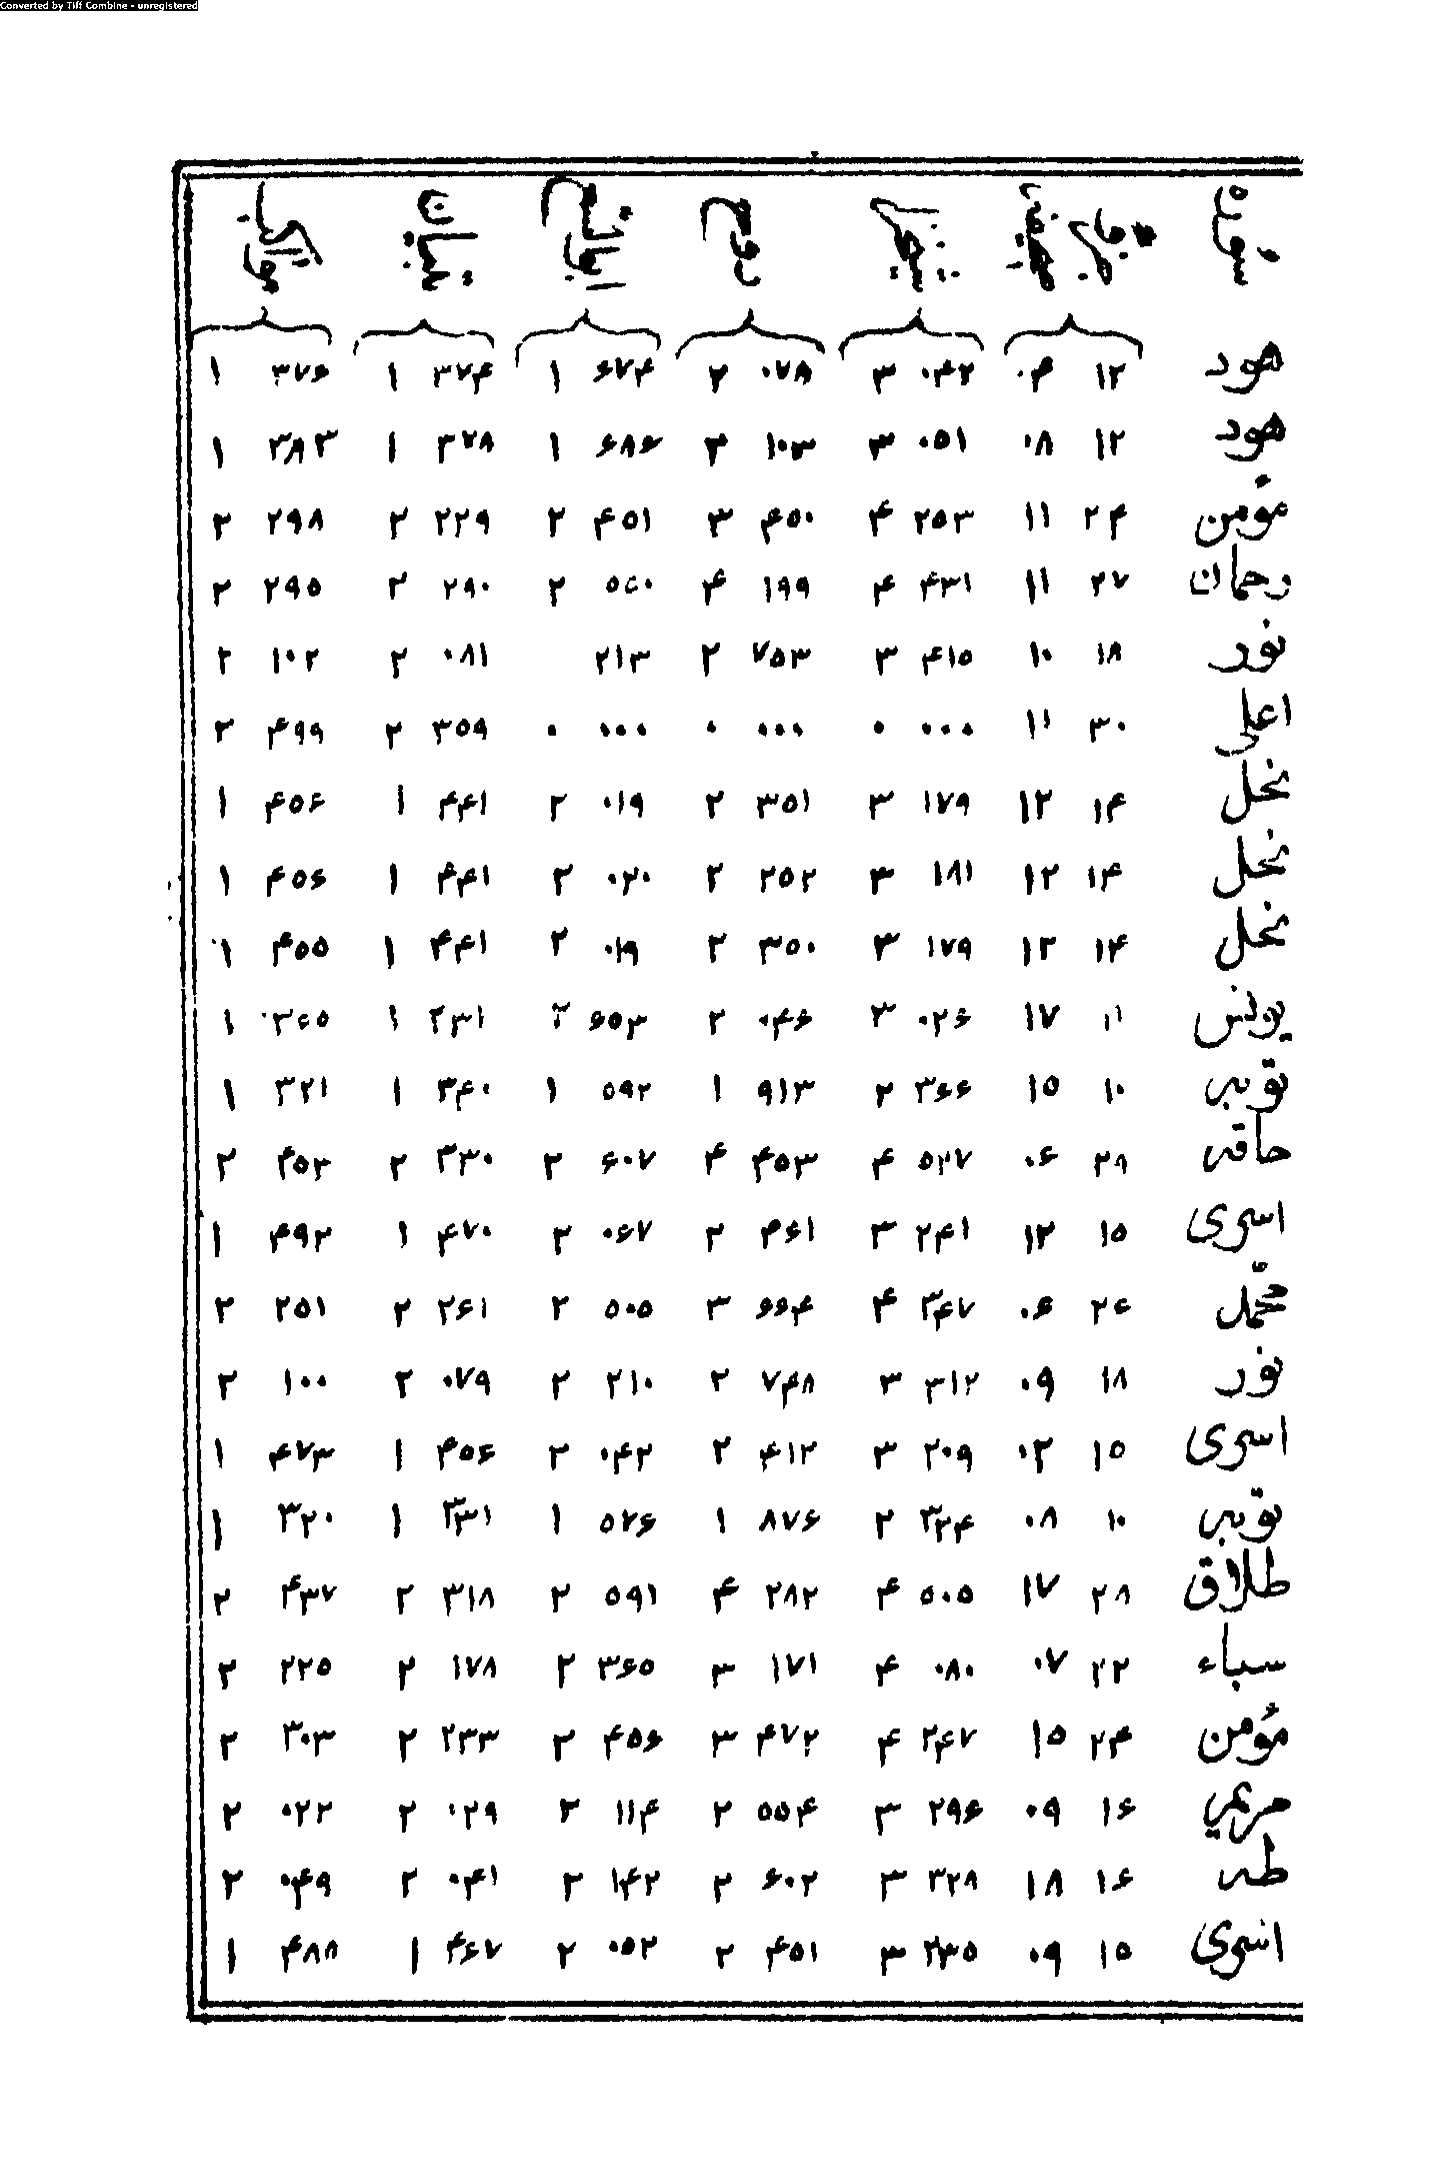 Converted by Tiff Combine - unregistered
سوره جزو صفحه شیخزاده روح ابوالسعود تبیان مواکب
هود ۱۲ ۰۴ ۰۴۲ ۳ ۰۷۸ ۲ ۶۷۴ ۱ ۳۷۴ ۱ ۳۷۶ ۱
هود ۱۲ ۰۸ ۰۵۱ ۳ ۱۰۳ ۲ ۶۸۶ ۱ ۳۷۸ ۱ ۳۸۳ ۱
مؤمن ۲۴ ۱۱ ۲۵۳ ۴ ۴۵۰ ۳ ۴۵۱ ۲ ۲۲۹ ۲ ۲۹۸ ۲
رحمان ۲۷ ۱۱ ۴۳۱ ۴ ۱۹۹ ۴ ۲ ۲۹۰ ۲ ۲۹۵ ۲
نور ۱۸ ۱۰ ۴۱۵ ۳ ۷۵۳ ۲ ۲۱۳ ۰۸۱ ۲ ۱۰۲ ۲
اعلی ۳۰ ۱۱ ۰۰۰ ۰ ۰۰۰ ۰ ۰۰۰ ۰ ۳۵۹ ۲ ۴۹۹ ۲
نحل ۱۴ ۱۲ ۱۷۹ ۳ ۳۵۱ ۲ ۰۱۹ ۲ ۴۴۱ ۱ ۴۵۶ ۱
نحل ۱۴ ۱۲ ۱۸۱ ۳ ۲۵۲ ۲ ۰۲۰ ۲ ۴۴۱ ۱ ۴۵۶ ۱
نحل ۱۴ ۱۲ ۱۷۹ ۳ ۳۵۰ ۲ ۰۱۹ ۲ ۴۴۱ ۱ ۴۵۵ ۱
یونس ۱۱ ۱۷ ۰۲۶ ۳ ۰۴۶ ۲ ۶۵۳ ۲ ۲۳۱ ۱ ۳۶۵ ۱
توبه ۱۰ ۱۵ ۳۶۶ ۲ ۹۱۳ ۱ ۵۹۲ ۱ ۳۴۰ ۱ ۳۲۱ ۱
حاقه ۲۹ ۰۶ ۵۲۷ ۴ ۴۵۳ ۴ ۶۰۷ ۲ ۳۳۰ ۲ ۴۵۳ ۲
اسری ۱۵ ۱۲ ۲۴۱ ۳ ۴۶۱ ۲ ۰۶۷ ۲ ۴۷۰ ۱ ۴۹۲ ۱
محمّد ۲۶ ۰۶ ۳۴۷ ۴ ۶۶۴ ۳ ۵۰۵ ۲ ۲۶۱ ۲ ۲۵۱ ۲
نور ۱۸ ۰۹ ۳۱۲ ۳ ۷۴۸ ۲ ۲۱۰ ۲ ۰۷۹ ۲ ۱۰۰ ۲
اسری ۱۵ ۰۲ ۲۰۹ ۳ ۴۱۲ ۲ ۰۴۲ ۲ ۴۵۶ ۱ ۴۷۳ ۱
توبه ۱۰ ۰۸ ۳۲۴ ۲ ۸۷۶ ۱ ۵۷۶ ۱ ۳۳۱ ۱ ۳۲۰ ۱
طلاق ۲۸ ۱۷ ۵۰۵ ۴ ۲۸۲ ۴ ۵۹۱ ۲ ۳۱۸ ۲ ۴۳۷ ۲
سباء ۲۲ ۰۷ ۰۸۰ ۴ ۱۷۱ ۳ ۳۶۵ ۲ ۱۷۸ ۲ ۲۲۵ ۲
مؤمن ۲۴ ۱۵ ۲۴۷ ۴ ۴۷۲ ۳ ۴۵۶ ۲ ۲۳۳ ۲ ۳۰۳ ۲
مریم ۱۶ ۰۹ ۲۹۶ ۳ ۵۵۴ ۲ ۱۱۴ ۲ ۰۲۹ ۲ ۰۲۲ ۲
طه ۱۶ ۱۸ ۳۲۸ ۳ ۶۰۲ ۲ ۱۴۲ ۲ ۰۴۱ ۲ ۰۴۹ ۲
اسری ۱۵ ۰۹ ۲۳۵ ۳ ۴۵۱ ۲ ۰۵۲ ۲ ۴۶۷ ۱ ۴۸۸ ۱